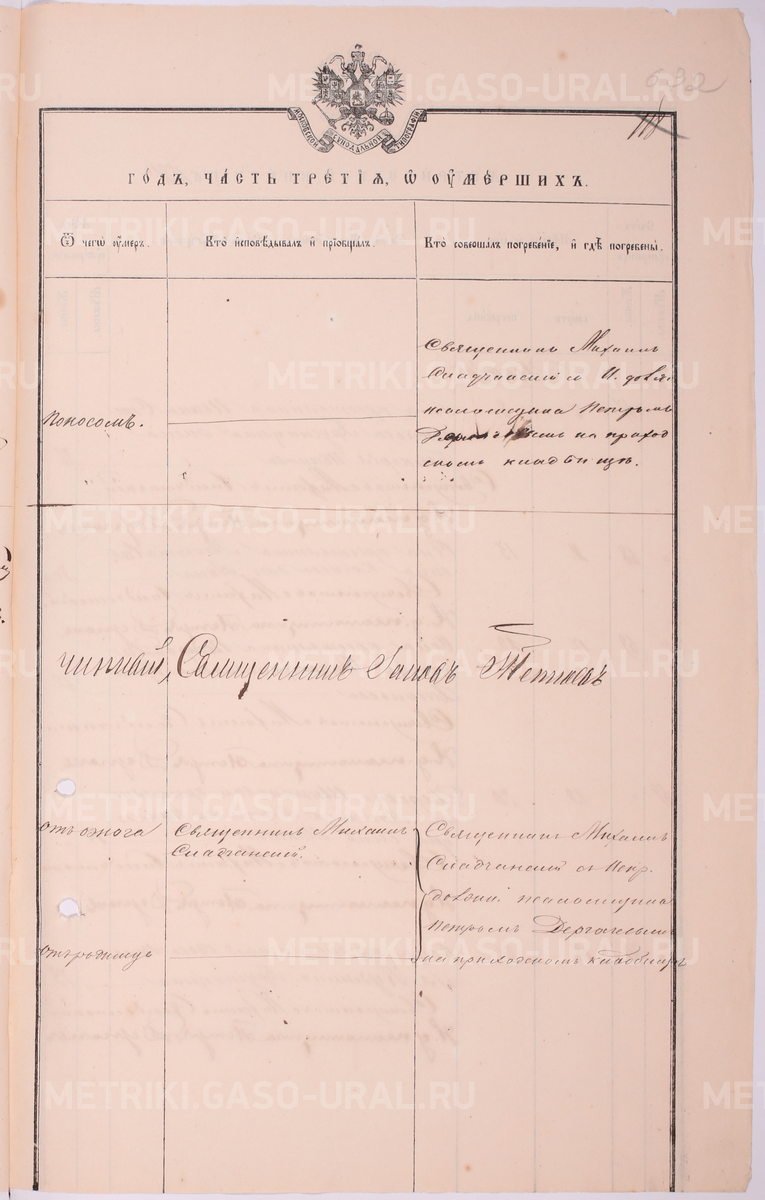 632
118
МОСКОВСКОЙ СѴНОДАЛЬНОЙ ТИПОГРАФІИ
ГОДЪ, ЧАСТЬ ТРЕТІЯ, Ѡ ОУМЕРШИХЪ.
Ѿ чегѡ оумеръ.
Кто исповѣдывалъ и пріобщалъ.
Кто совершалъ погребеніе, и гдѣ погребены.
Поносомъ.
Священникъ Михаилъ
Сладчанскій съ И. дол.
псаломщика Петромъ
на приход
скомъ кладбищѣ.
Священникъ
отъ ожога
Священникъ Михаилъ
Сладчанскій.
Священникъ Михаилъ
Сладчанскій съ Испр.
должн. псаломщика
Петромъ Дергачевымъ
на приходскомъ кладбищѣ
отъ родимца
METRIKI.GASO-URAL.RU